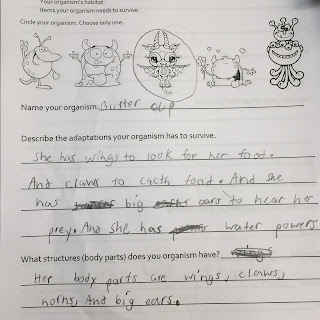 Your organism's habitat
Items your organism needs to survive
Circle your organism. Choose only one.
Name your organism. Butter Cup
Describe the adaptations your organism has to survive.
She has wings to look for her food.
And claws to cacth food. And she
has big ears to hear her
prey. And she has water powers
What structures (body parts) does you organism have?
Her body parts are wings, claws,
horns, And big ears.